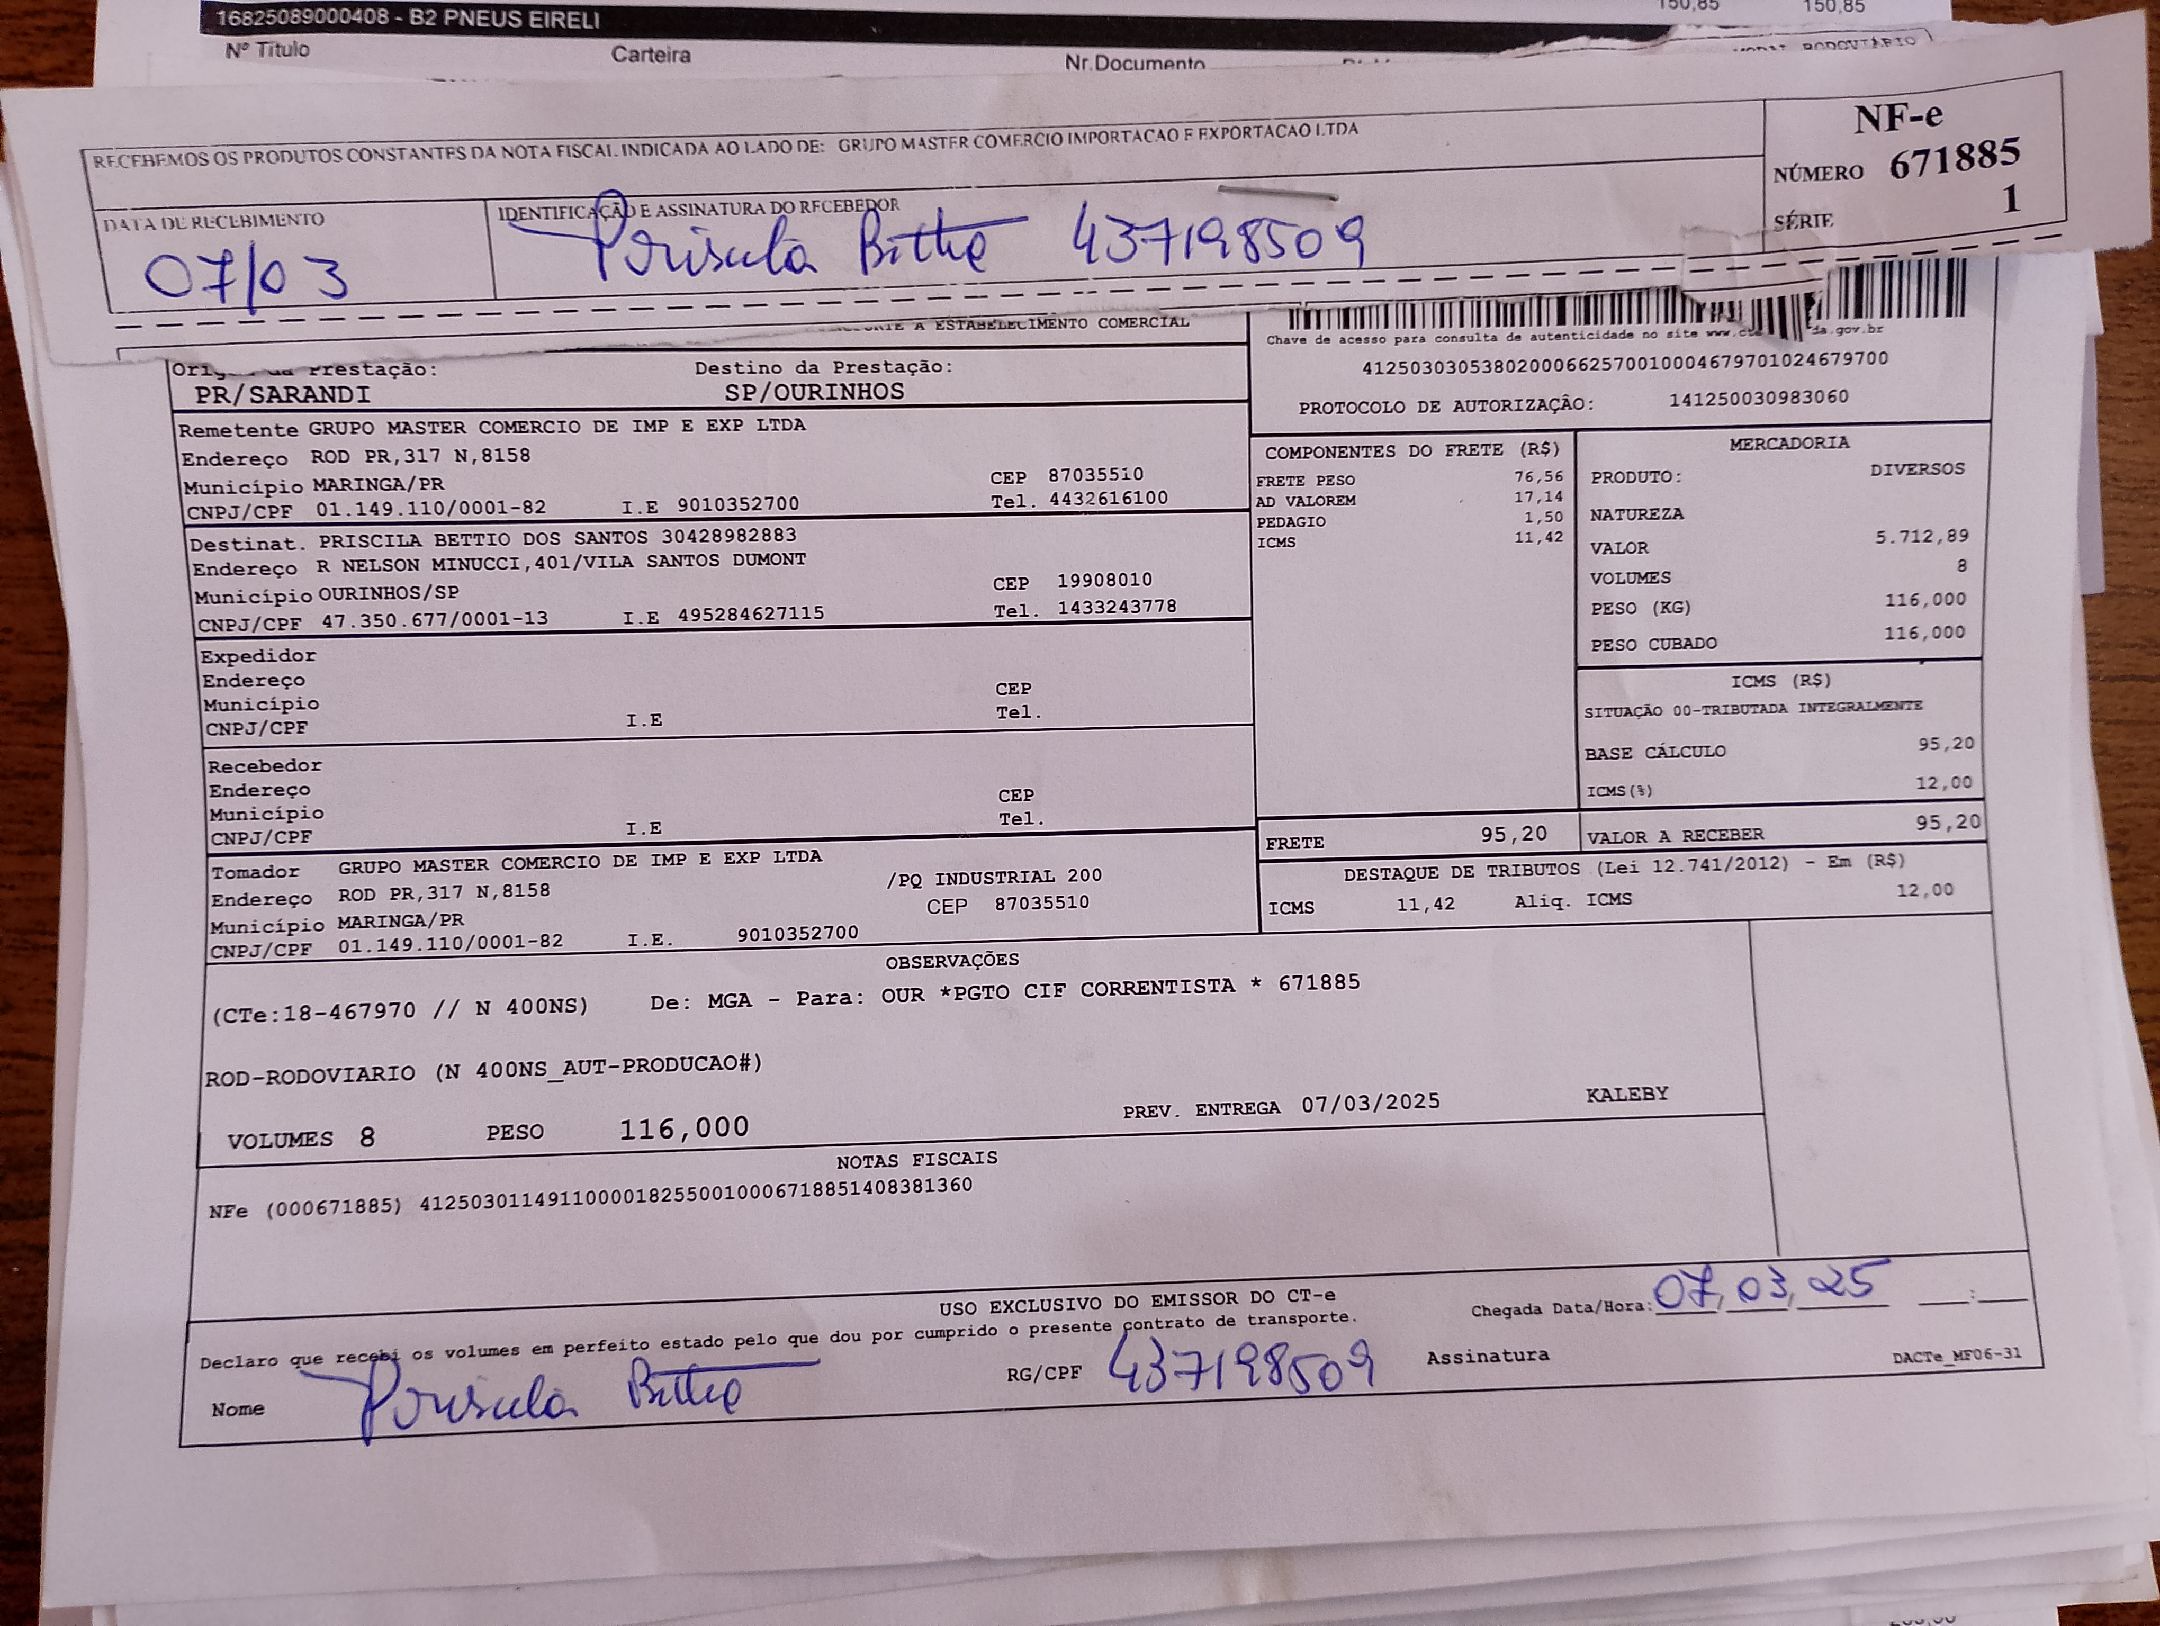 16825089000408 - B2 PNEUS EIRELI
150,85 150,85
Nº Titulo Carteira Nr.Documento
RODOVIÁRIO
RECEBEMOS OS PRODUTOS CONSTANTES DA NOTA FISCAL INDICADA AO LADO DE: GRUPO MASTER COMERCIO IMPORTACAO E EXPORTACAO LTDA
NF-e
NÚMERO 671885
SÉRIE 1
DATA DE RECEBIMENTO
07/03
IDENTIFICAÇÃO E ASSINATURA DO RECEBEDOR
Priscila Bettio 437198509
A ESTABELECIMENTO COMERCIAL
Chave de acesso para consulta de autenticidade no site
da.gov.br
41250303053802000662570010004679701024679700
PROTOCOLO DE AUTORIZAÇÃO: 141250030983060
Prestação: Destino da Prestação:
PR/SARANDI SP/OURINHOS
Remetente GRUPO MASTER COMERCIO DE IMP E EXP LTDA
Endereço ROD PR,317 N,8158
Município MARINGA/PR CEP 87035510
CNPJ/CPF 01.149.110/0001-82 I.E 9010352700 Tel. 4432616100
Destinat. PRISCILA BETTIO DOS SANTOS 30428982883
Endereço R NELSON MINUCCI,401/VILA SANTOS DUMONT
Município OURINHOS/SP CEP 19908010
CNPJ/CPF 47.350.677/0001-13 I.E 495284627115 Tel. 1433243778
Expedidor
Endereço
Município CEP
CNPJ/CPF I.E Tel.
Recebedor
Endereço
Município CEP
CNPJ/CPF I.E Tel.
Tomador GRUPO MASTER COMERCIO DE IMP E EXP LTDA
Endereço ROD PR,317 N,8158 /PQ INDUSTRIAL 200
Município MARINGA/PR CEP 87035510
CNPJ/CPF 01.149.110/0001-82 I.E. 9010352700
COMPONENTES DO FRETE (R$)
FRETE PESO 76,56
AD VALOREM 17,14
PEDAGIO 1,50
ICMS 11,42
MERCADORIA
PRODUTO: DIVERSOS
NATUREZA
VALOR 5.712,89
VOLUMES 8
PESO (KG) 116,000
PESO CUBADO 116,000
ICMS (R$)
SITUAÇÃO 00-TRIBUTADA INTEGRALMENTE
BASE CÁLCULO 95,20
ICMS(%) 12,00
FRETE 95,20 VALOR A RECEBER 95,20
DESTAQUE DE TRIBUTOS (Lei 12.741/2012) - Em (R$)
ICMS 11,42 Aliq. ICMS 12,00
OBSERVAÇÕES
(CTe:18-467970 // N 400NS) De: MGA - Para: OUR *PGTO CIF CORRENTISTA * 671885
ROD-RODOVIARIO (N 400NS_AUT-PRODUCAO#)
VOLUMES 8 PESO 116,000 PREV. ENTREGA 07/03/2025 KALEBY
NOTAS FISCAIS
NFe (000671885) 41250301149110000182550010006718851408381360
USO EXCLUSIVO DO EMISSOR DO CT-e
Chegada Data/Hora: 07,03,25 ___:___
Declaro que recebi os volumes em perfeito estado pelo que dou por cumprido o presente contrato de transporte.
Nome Priscila Bettio RG/CPF 437198509 Assinatura
DACTe_MF06-31